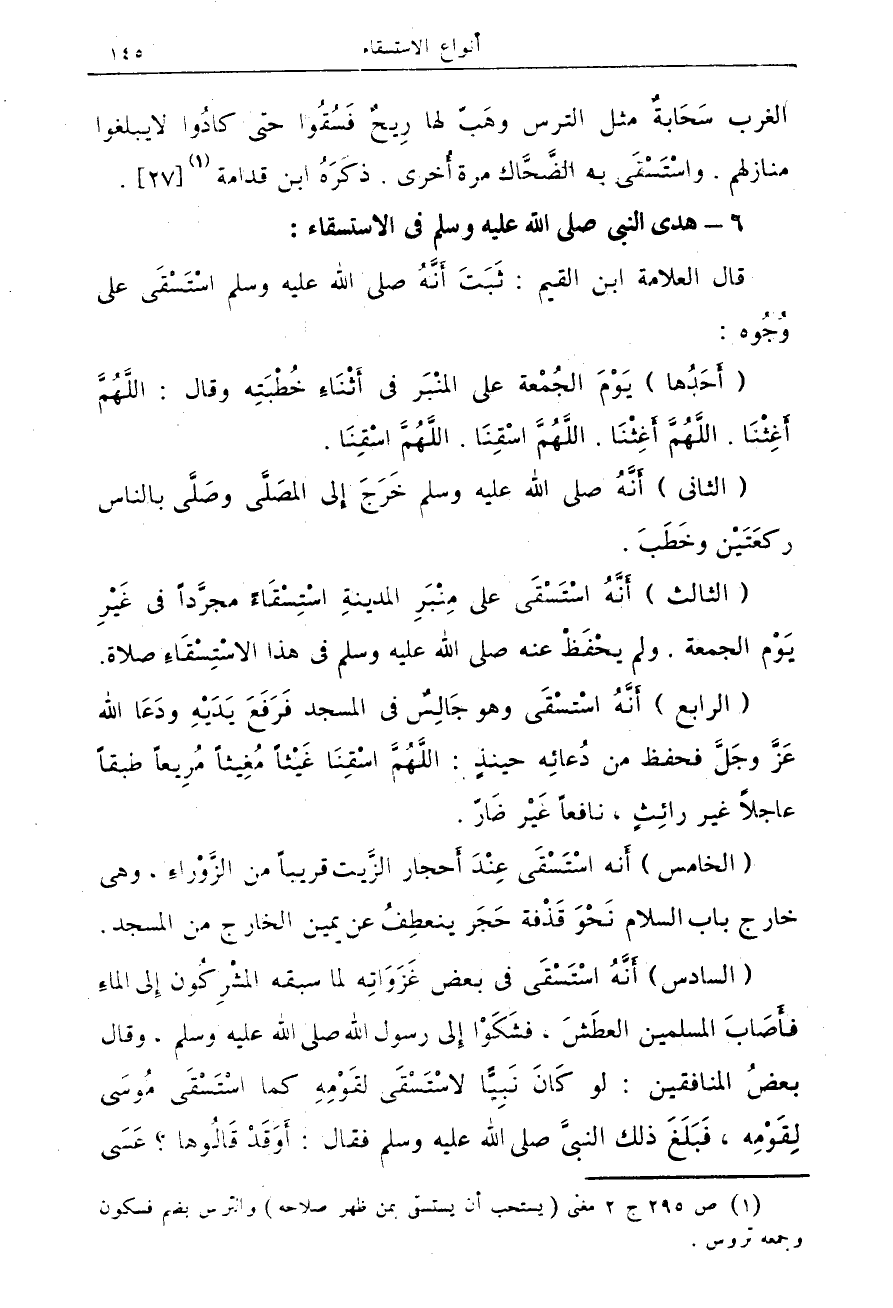 أنواع الاستسقاء ١٤٥
الغرب سَحَابةٌ مثل الترس وهَبّ لها رِيحٌ فَسُقُوا حتى كادُوا لايبلغوا
منازلهم . واسْتَسْقَى به الضَّحَّاك مرة أُخرى . ذكَرَهُ ابن قدامة (١) [٢٧] .
٩ – هدى النبى صلى الله عليه وسلم فى الاستسقاء :
قال العلامة ابن القيم : ثَبَتَ أَنَّهُ صلى الله عليه وسلم اسْتَسْقَى على
وُجُوه :
( أَحَدُها ) يَوْمَ الجُمْعة على المنْبَر فى أَثْنَاءِ خُطْبَتِه وقال : اللَّهُمَّ
أَغِثْنَا . اللَّهُمَّ أَغِثْنَا . اللَّهُمَّ اسْقِنَا . اللَّهُمَّ اسْقِنَا .
( الثانى ) أَنَّهُ صلى الله عليه وسلم خَرَجَ إلى المصَلَّى وصَلَّى بالناس
ركعَتَيْن وخَطَبَ .
( الثالث ) أَنَّهُ اسْتَسْقَى على مِنْبَرِ المدينةِ اسْتِسْقَاءً مجرَّداً فى غَيْرِ
يَوْم الجمعة . ولم يحْفَظْ عنه صلى الله عليه وسلم فى هذا الاسْتِسْقَاءِ صلاة.
( الرابع ) أَنَّهُ اسْتسْقَى وهو جَالِسٌ فى المسجد فَرَفَعَ يَدَيْهِ ودَعَا الله
عَزَّ وجَلَّ فحفظ من دُعائِه حينئذٍ : اللَّهُمَّ اسْقِنَا غَيْثاً مُغِيثاً مُرِيعاً طبقاً
عاجلاً غير رائِثٍ ، نافعاً غَيْر ضَارّ .
( الخامس ) أَنه اسْتَسْقَى عِنْدَ أَحجار الزَّيت قريباً من الزَّوْراءِ . وهى
خارج باب السلام نَحْوَ قذفة حَجَر ينعطِفُ عن يمين الخارج من المسجد.
( السادس ) أَنَّهُ اسْتَسْقَى فى بعض غَزَوَاتِه لما سبقه المشْركُون إلى الماءِ
فأَصَابَ المسلمين العطَشَ ، فشَكَوْا إلى رسول الله صلى الله عليه وسلم . وقال
بعضُ المنافقين : لو كَانَ نَبِيًّا لاسْتَسْقَى لقَوْمِهِ كما اسْتَسْقَى مُوسَى
لِقَوْمِه ، فَبَلَغَ ذلك النبىَّ صلى الله عليه وسلم فقال : أَوَقَدْ قَالُوها ؟ عَسَى
(١) ص ٢٩٥ ج ٢ مغنى ( يستحب أن يستسقى بمن ظهر صلاحه ) والترس بضم فسكون
وجمعه تروس .